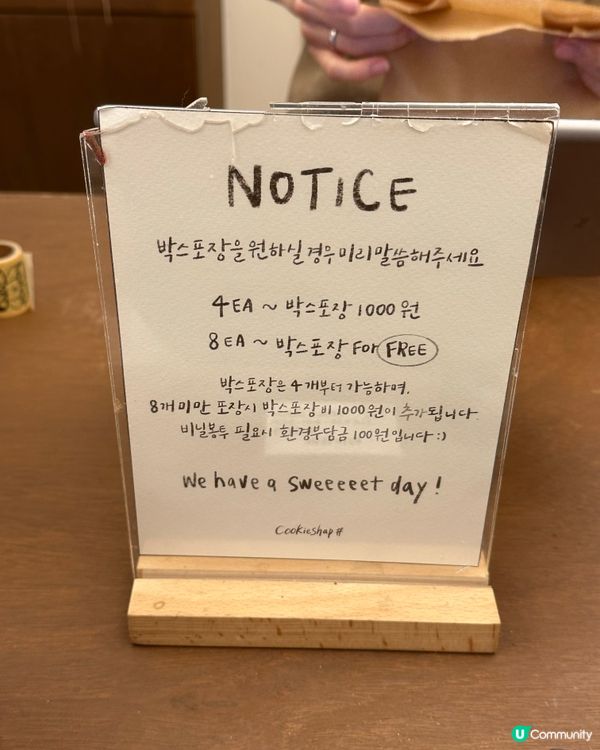 NOTICE
박스포장을 원하실 경우 미리 말씀해주세요
4EA ~ 박스포장 1000원
8EA ~ 박스포장 FOR FREE
박스포장은 4개부터 가능하며,
8개 미만 포장시 박스포장비 1000원이 추가됩니다.
비닐봉투 필요시 환경부담금 100원입니다 :)
We have a sweeeeet day!
Cookieshap#
U Community